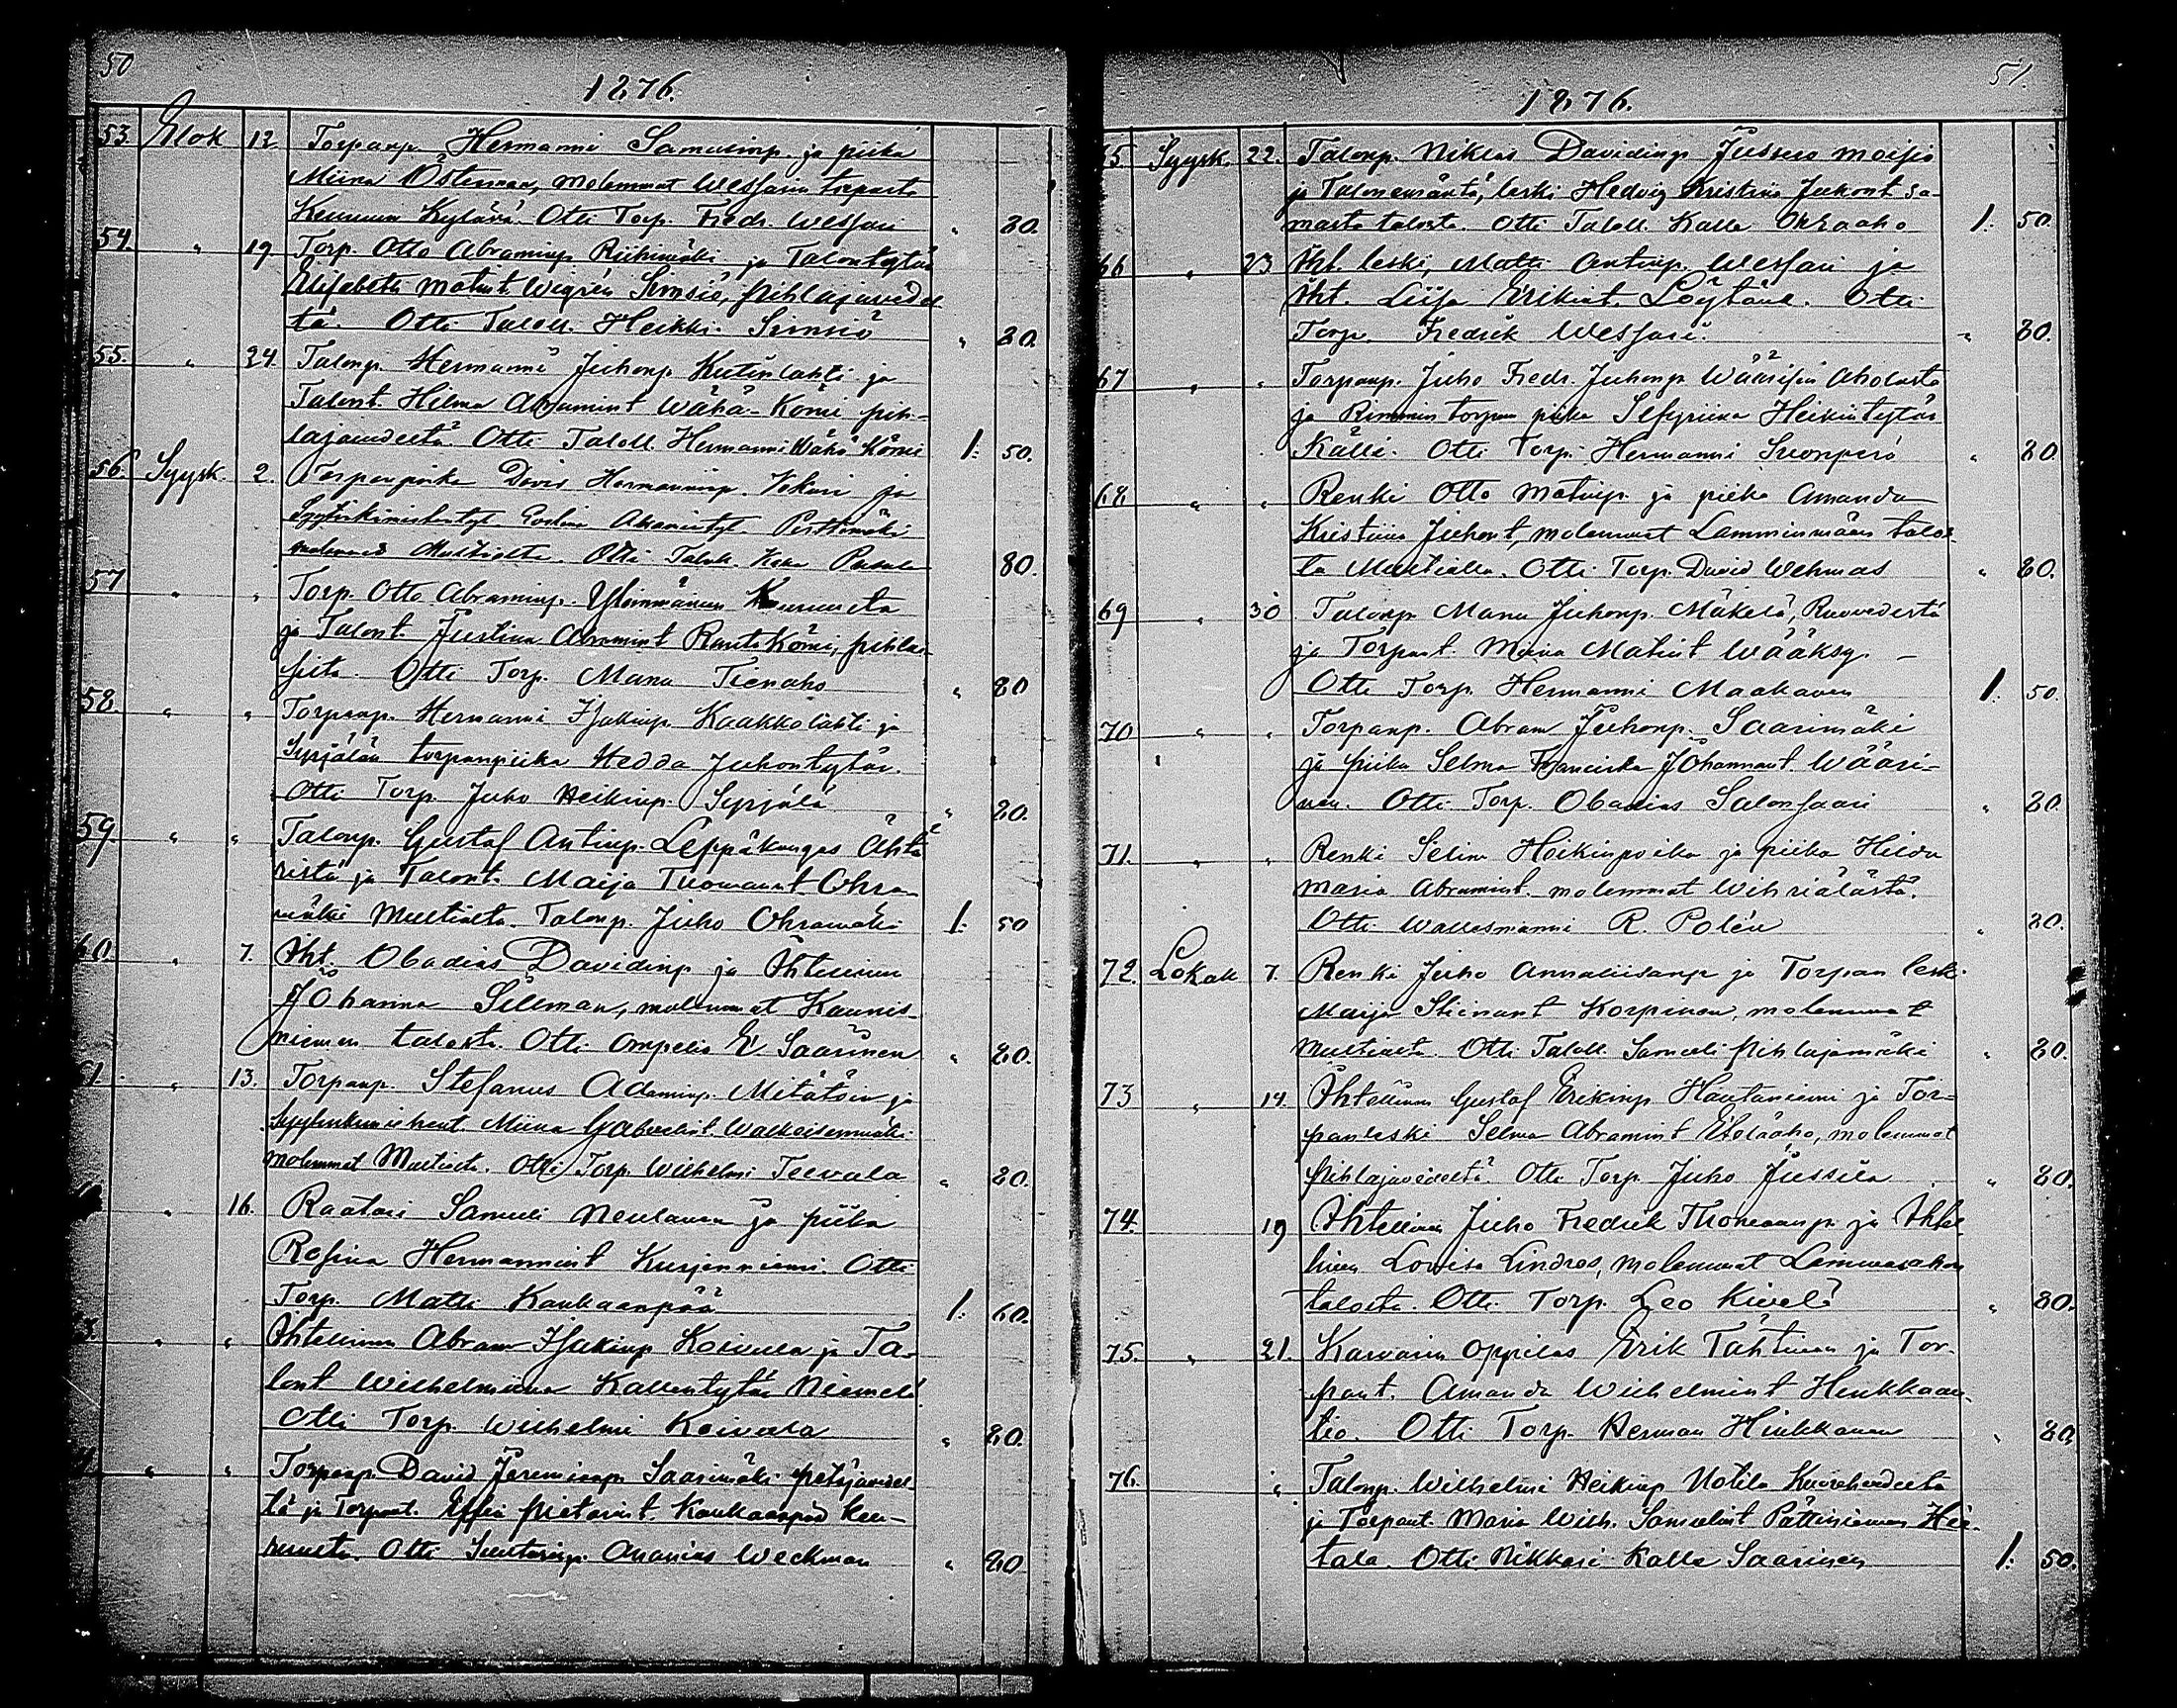 50
1876.
53. Elok. 12. Torpanp. Hermanni Samulinp. ja piika
Miina Österman, molemmat Wessarin torpasta
Keuruun Kylässä. Otti Torp. Fredr. Wessari " 80.
54. " 19 Torp. Otto Abraminp. Riihimäki ja Talontytär
Elisabeth Matint. Wigrén Simsiö, Pihlajavedel
tä. Otti Taloll. Heikki Simsiö " 80.
55. " 24. Talonp. Hermanni Juhonp. Kutinlahti ja
Talont. Hilma Abramint Wähä-Kömi Pih-
lajavedeltä. Otti Taloll. Hermanni Wähä Kömi 1: 50.
56. Syysk. 2. Torpanpoika David Hermanninp. ja
molemmat Multialta. Otti Taloll. 80.
57 " " Torp. Otto Abraminp. Yleinmäinen Keuruulta
ja Talont. Justina Abramint Rantakömi, Pihla-
jista. Otti Torp. Manu Tienaho " 80
58. " " Torpanp. Hermanni Isakinp. Kaakkolahti ja
Syrjälän torpanpiika Hedda Juhontytär.
Otti Torp. Juho Heikinp. Syrjälä " 80.
59. " " Talonp. Gustaf Antinp. Leppäkangas Ähtä
ristä ja Talont. Maija Thomaant Ohra-
mäki Multialta. Talonp. Juho Ohramäki 1: 50
60. " 7. Iht. Obadias Davidinp. ja Ihtellinen
Johanna Sillman, molemmat Kaunis-
niemen talosta. Otti Ompelia E. Saarinen " 80.
61. " 13. Torpanp. Stefanus Adaminp. Mitätöin ja
Syytinkimiehent. Miina Gabrielint. Walkeisenmäki
molemmat Multialta. Otti Torp. Wilhelmi Teevala " 80.
" 16. Raatari Samuli Neulanen ja piika
Rosina Hermannint Kurjenniemi. Otti
Torp. Matti Kaukaanpää 1: 60.
3. " " Ihtellinen Abram Isakinp Koivula ja Ta-
lont Wilhelmiina Kallentytär Niemelä
Otti Torp. Wilhelmi Koivula " 80.
" " Torpanp. David Jeremianp. Saarimäki Petäjävedel
tä ja Torpant. Eftin Pietarint. Kaukaanpää Keu-
ruulta. Otti Suutarinp. Ananias Weckman " 80
51.
1876.
65 Syysk. 22. Talonp. Niklas Davidinp. Jussero moisio
ja Talonemäntä, leski Hedvig Kristiina Jukont sa-
masta talosta. Otti Taloll. Kalle Ohraaho 1: 50.
66 " 23 Iht. leski, Matti Antinp. Wessari ja
Iht. Liisa Erikint. Löytäne. Otti
Torp. Fredrik Wessari. " 80.
67 " " Torpanp. Juho Fredr. Juhonp. Wäärisen Aholasta
ja Rimmin torpan piika Sefyriina Heikintytär
Källi. Otti Torp. Hermanni Suonperä " 80
68 " " Renki Otto Matinp. ja piika Amanda
Kristiina Juhont, molemmat Lamminmäen talos
ta Multialla. Otti Torp. David Wehmas " 80.
69 " 30 Talonp. Manu Juhonp. Mäkelä, Ruovedestä
ja Torpant. Miina Matint Wääksy. –
Otti Torp. Hermanni Maahanen 1: 50.
70 " " Torpanp. Abram Juhonp. Saarimäki
ja piika Selma Franciska Johannant. Wääri-
nen. Otti Torp. Obadias Salonsaari " 80
71. " " Renki Selim Heikinpoika ja piika Hilda
Maria Abramint. molemmat Wihriälästä.
Otti Wallesmanni R. Polén " 80.
72. Lokak 7. Renki Juho Annaliisanp. ja Torpan lesk.
Maija Stiinant Korpinen, molemmat
Multialta. Otti Taloll. Samuli Pihlajamäki " 80.
73 " 14. Ihtellinen Gustaf Erikinp. Hautaniemi ja Tor-
panleski Selma Abramint Eteläaho, molemmat
Pihlajavedeltä. Otti Torp. Juho Jussila " 80.
74. 19 Ihtellinen Juho Fredrik Thomaanp. ja Ihtel
linen Lovisa Lindros, molemmat Lammasahon
talosta. Otti Torp. Leo Kivelä " 80.
75. " 21. Karvarin oppilas Erik Tähtinen ja Tor-
pant. Amanda Wilhelmint Henkkaan-
tio. Otti Torp. Herman Hinkkanen " 80
76. " Talonp. Wilhelmi Heikinp Notila Kuorehvedeltä
ja Torpant. Maria Wilh. Samulint Pättiniemen Hie-
tala. Otti Nikkari Kalle Saarinen 1: 50.